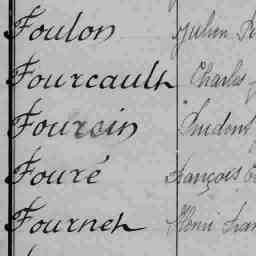 Foulon Julien
Fourcault Charles
Fourcin Prudent
Fouré François
Fourneh Henri